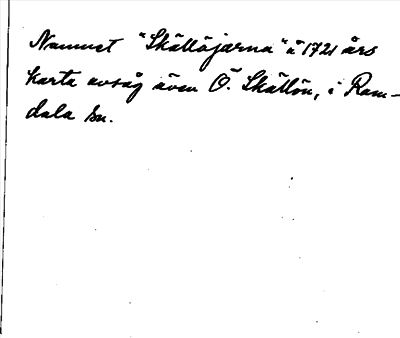 Namnet "Skällöjarna" å 1721 års
karta avsåg även Ö. Skällön, i Ram-
dala sn.